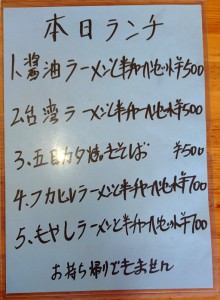 本日ランチ
1.醤油ラーメンと半チャーハンセット¥500
2.台湾ラーメンと半チャーハンセット¥500
3.五目カタ焼きそば ¥500
4.フカヒレラーメンと半チャーハンセット¥700
5.もやしラーメンと半チャーハンセット¥700
お持ち帰りできません